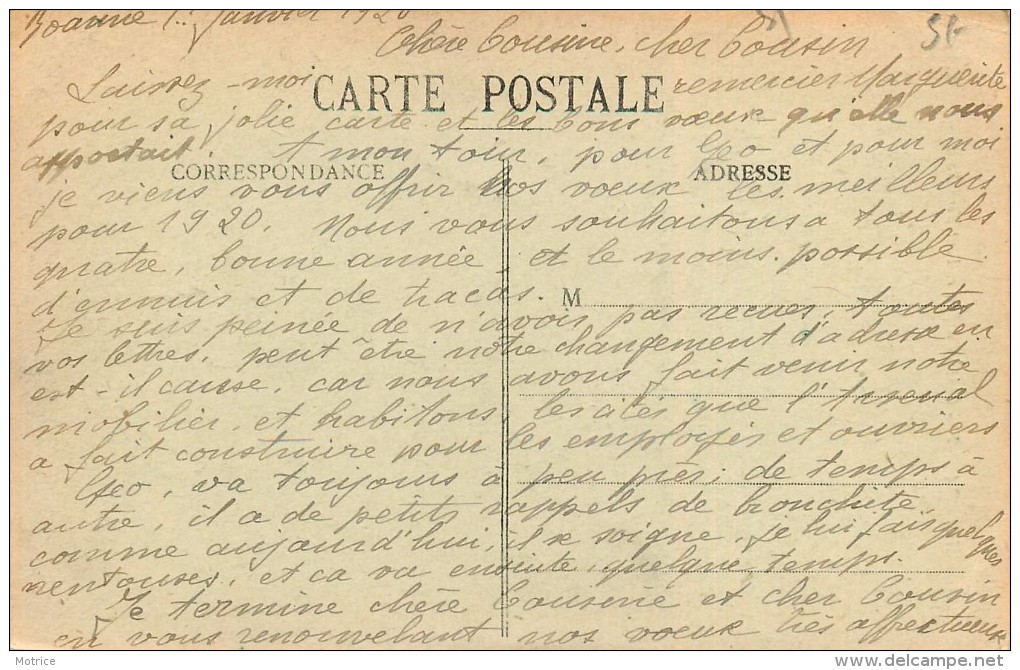 Roanne 1er Janvier 1920
Chère Cousine, cher Cousin
Laissez-moi remercier Marguerite
CARTE POSTALE
pour sa jolie carte et les bons vœux qu'elle nous
apportait. A mon tour, pour Géo et pour moi
CORRESPONDANCE
ADRESSE
je viens vous offrir nos vœux les meilleurs
pour 1920. Nous vous souhaitons a tous les
quatre, bonne année, et le moins possible
d'ennuis et de tracas.
M
Je suis peinée de n'avoir pas reçues, toutes
vos lettres, peut être notre changement d'adresse en
est-il cause, car nous avons fait venir notre
mobilier, et habitons les cités que l'Arsenal
a fait construire pour les employés et ouvriers
Géo, va toujours à peu près; de temps à
autre, il a de petits rappels de bronchite,
comme aujourd'hui, il se soigne, je lui fais quelques
ventouses, et ca va ensuite quelque temps.
Je termine chère Cousine et cher Cousin
en vous renouvelant nos vœux très affectueux
Motrice
delcampe.net